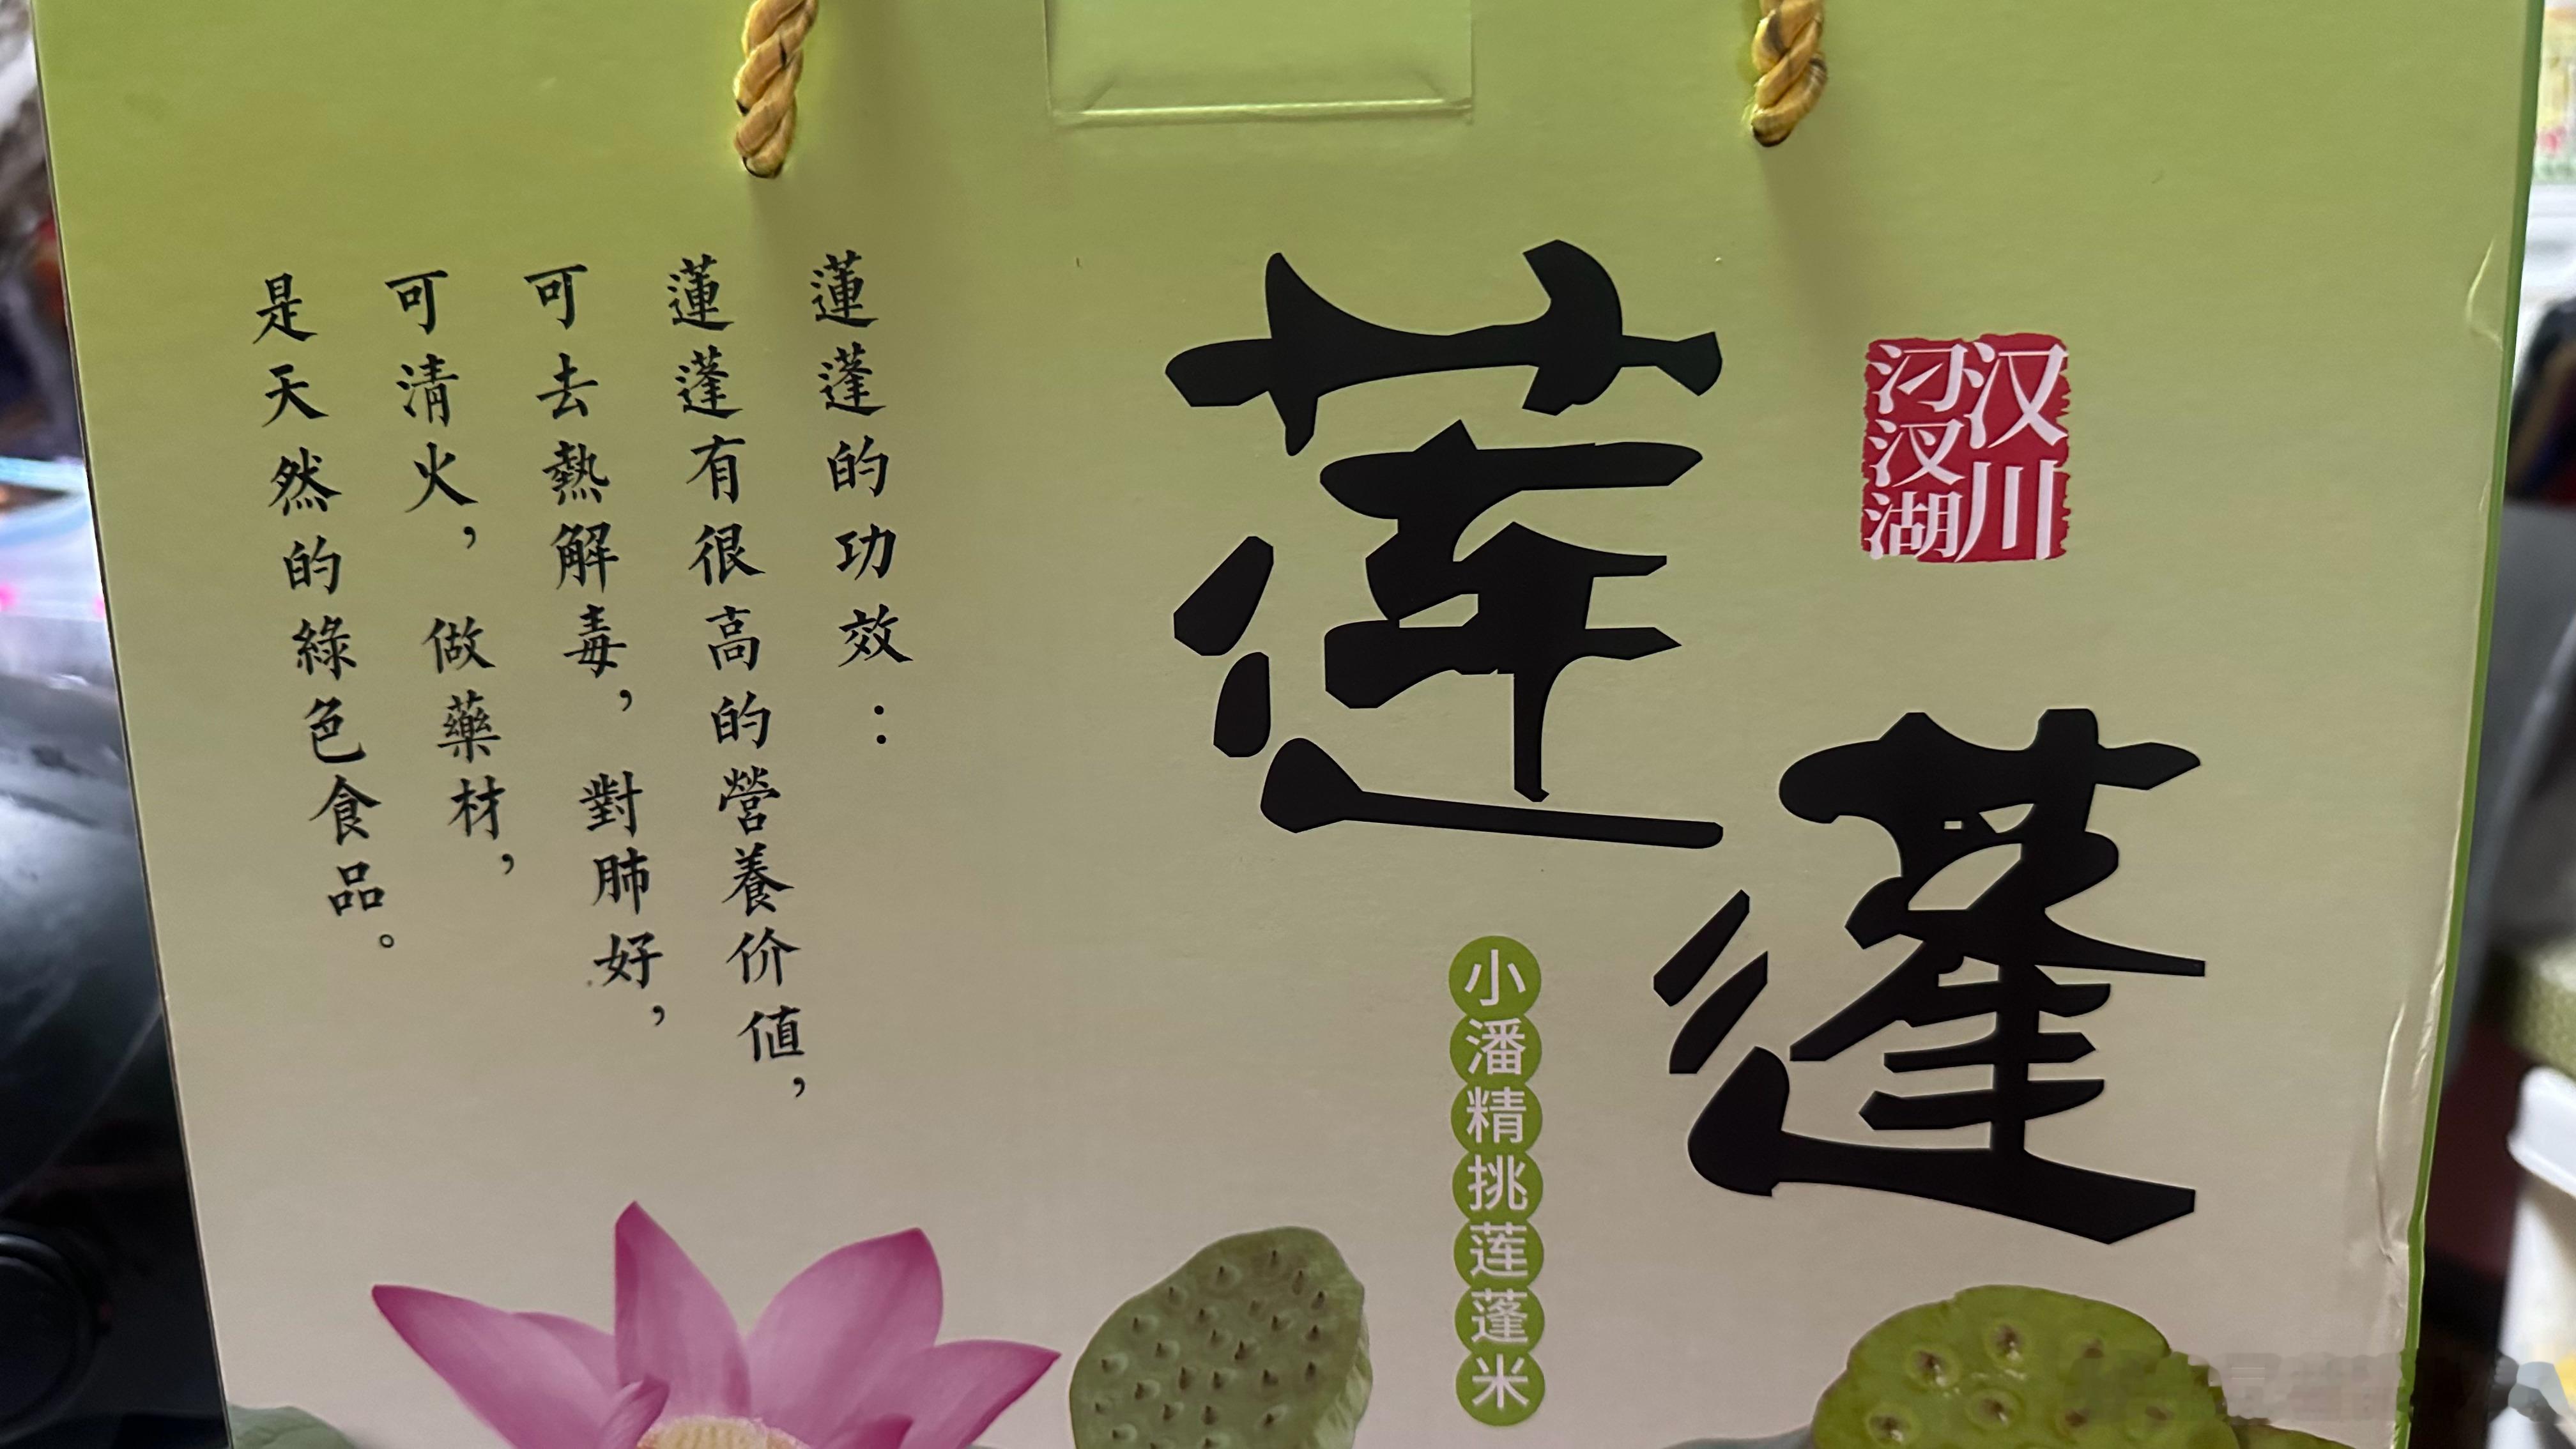 汉川
汈汊湖
莲蓬
小潘精挑莲蓬米
蓮蓬的功效：
蓮蓬有很高的營養价值，
可去熱解毒，對肺好，
可清火，做藥材，
是天然的綠色食品。